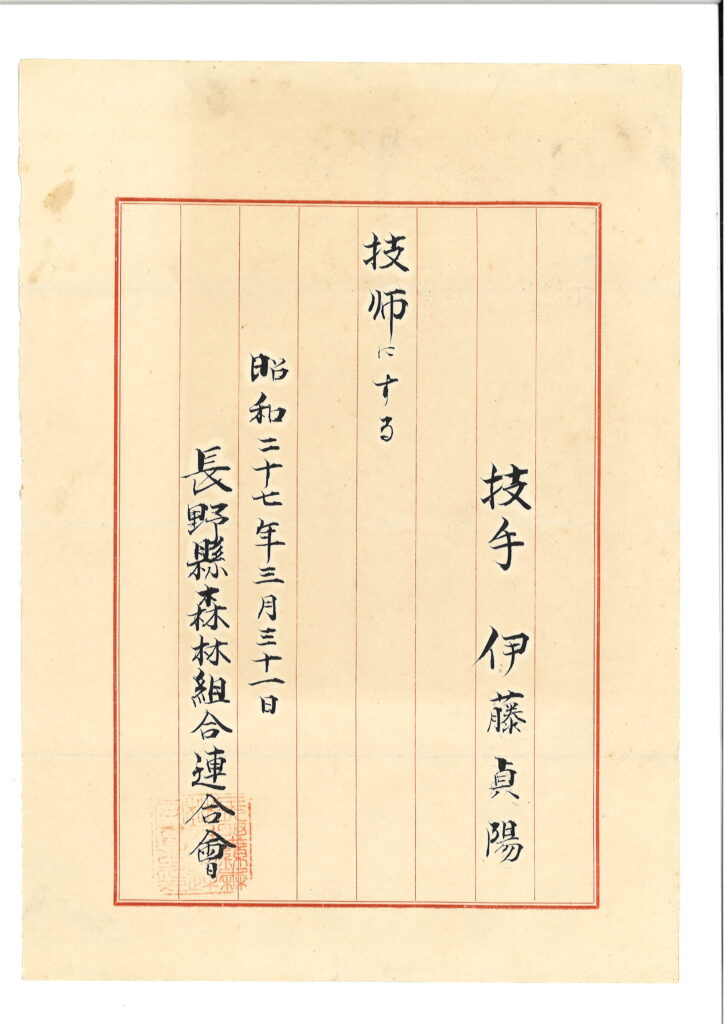 技手　伊藤貞陽
技師にする
昭和二十七年三月三十一日
長野縣森林組合連合會